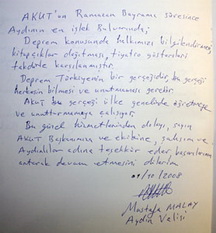 AKUT'un Ramazan Bayramı süresince
Aydının en işlek Bulvarında;
Deprem konusunda halkımızı bilgilendirmesi
kitapçıklar dağıtması, tiyatro gösterileri
takdirle karşılanmıştır.
Deprem Türkiyenin bir gerçeğidir, bu gerçeği
herkesin bilmesi ve unutmaması gerekir.
AKUT bu gerçeği ülke genelinde öğretmeye
ve unutturmamaya çalışıyor.
Bu güzel hizmetlerinden dolayı, sayın
AKUT Başkanımızı ve ekibine, şahsım ve
Aydınlılar adına teşekkür eder başarılarının
artarak devam etmesini dilerim.
/10/2008
Mustafa MALAY
Aydın Valisi